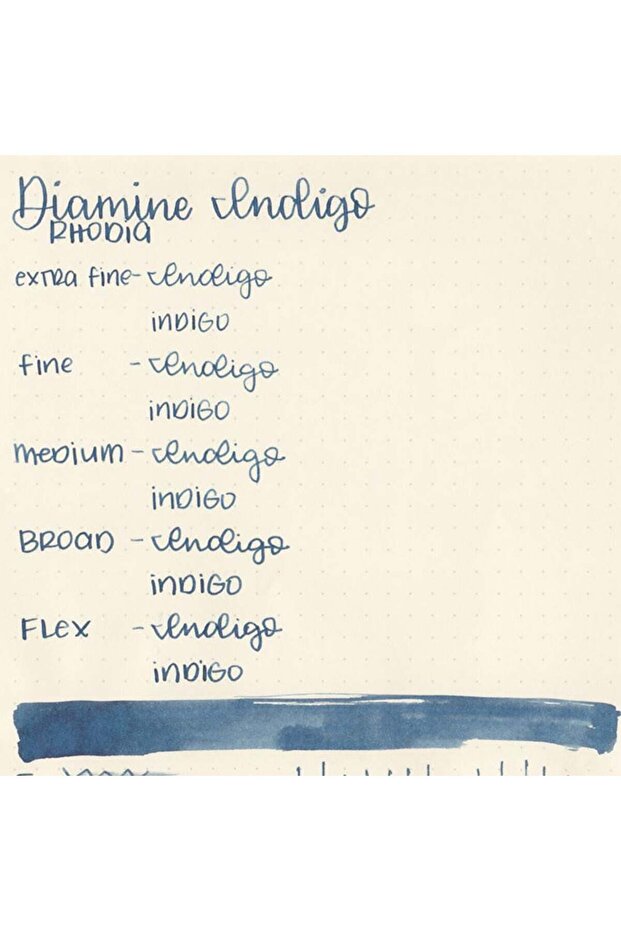 Diamine Indigo
RHODIA
extra fine - Indigo
inDiGO
fine - Indigo
inDiGO
meDium - Indigo
inDiGO
BROAD - Indigo
inDiGO
FLex - Indigo
inDiGO